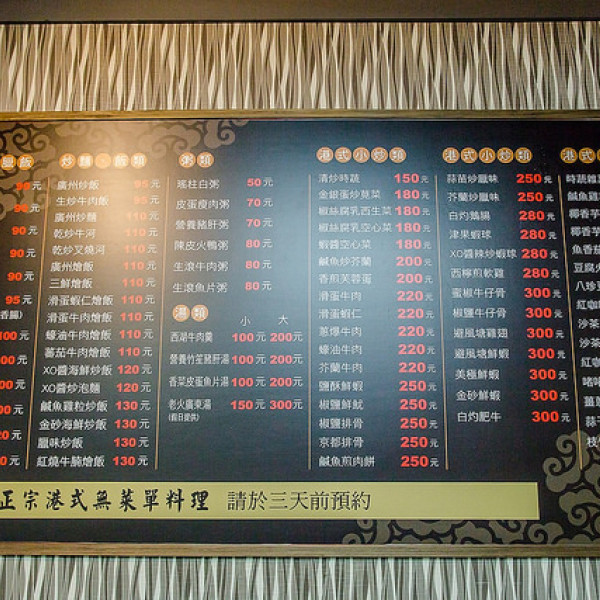 臘飯
90元
90元
90元
90元
90元
95元
100元
炒麵、飯類
廣州炒飯 95元
生炒牛肉飯 95元
廣州炒麵 110元
乾炒牛河 110元
乾炒叉燒河 110元
廣州燴飯 110元
三鮮燴飯 110元
滑蛋蝦仁燴飯 110元
滑蛋牛肉燴飯 110元
蠔油牛肉燴飯 110元
蕃茄牛肉燴飯 110元
XO醬海鮮炒飯 120元
XO醬炒泡麵 120元
鹹魚雞粒炒飯 130元
金砂海鮮炒飯 130元
臘味炒飯 130元
紅燒牛腩燴飯 130元
粥類
瑤柱白粥 50元
皮蛋瘦肉粥 70元
營養豬肝粥 70元
陳皮火鴨粥 80元
生滾牛肉粥 80元
生滾魚片粥 80元
湯類
小 大
西湖牛肉羹 100元 200元
營養竹笙豬肝湯 100元 200元
香菜皮蛋魚片湯 100元 200元
老火廣東湯 150元 300元
(假日提供)
港式小炒類
清炒時蔬 150元
金銀蛋炒莧菜 180元
椒絲腐乳西生菜 180元
椒絲腐乳空心菜 180元
蝦醬空心菜 180元
鹹魚炒芥蘭 200元
香煎芙蓉蛋 200元
滑蛋牛肉 220元
滑蛋蝦仁 220元
蔥爆牛肉 220元
蠔油牛肉 220元
芥蘭牛肉 220元
鹽酥鮮蝦 250元
椒鹽鮮魷 250元
椒鹽排骨 250元
京都排骨 250元
鹹魚煎肉餅 250元
港式小炒類
蒜苗炒臘味 250元
芥蘭炒臘味 250元
白灼鵝腸 280元
津果蝦球 280元
XO醬辣炒蝦球 280元
西檸煎軟雞 280元
蜜椒牛仔骨 300元
椒鹽牛仔骨 300元
避風塘雞翅 300元
避風塘鮮蝦 300元
美極鮮蝦 300元
金砂鮮蝦 300元
白灼肥牛 300元
港式
時蔬
鹹魚雞
椰香
椰香
魚香茄
豆腐
八珍豆
紅咖
沙茶
沙茶
紅咖
啫啫
薑
蒜子
枝
正宗港式無菜單料理 請於三天前預約